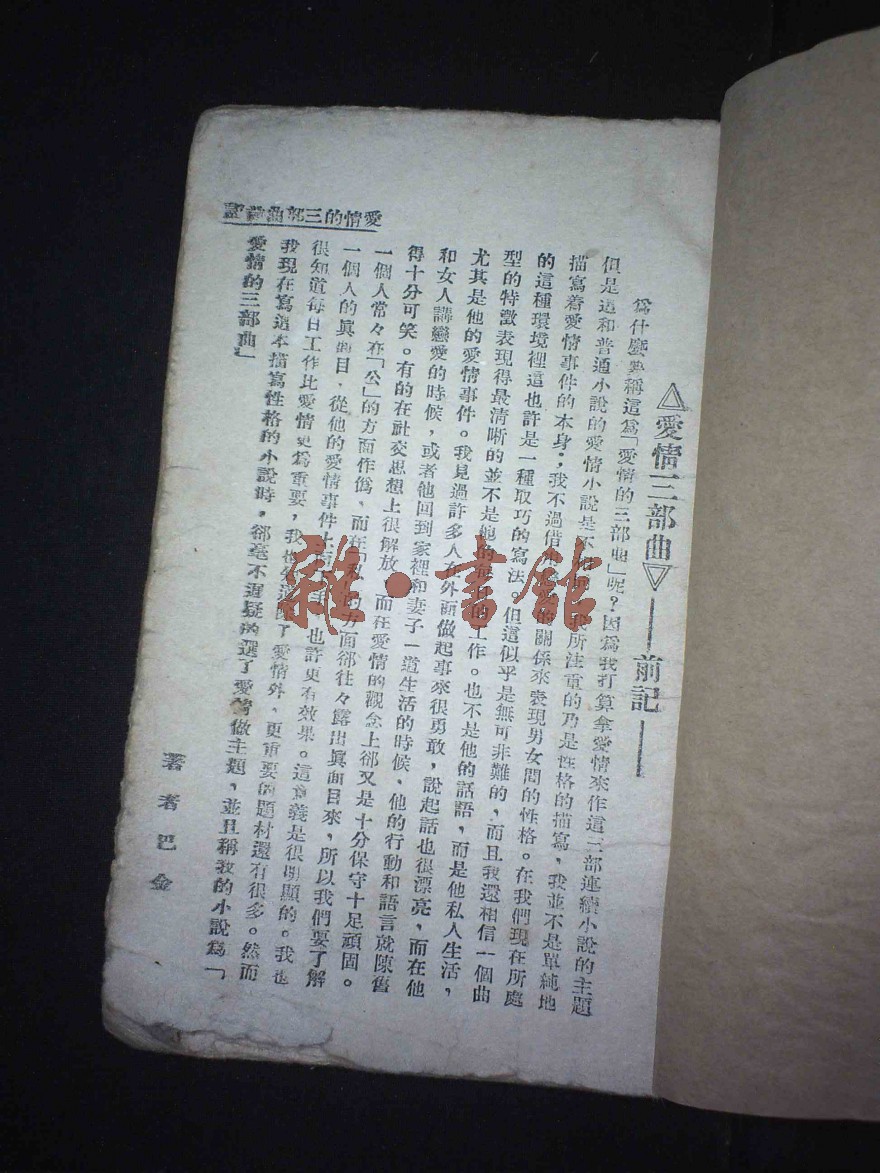 △愛情三部曲▽——前記——
爲什麼要稱這爲「愛情的三部曲」呢？因爲我打算拿愛情來作這三部連續小說的主題
但是這和普通小說的愛情小說是不 我所注重的乃是性格的描寫，我並不是單純地
描寫着愛情事件的本身；我不過借 的關係來表現男女間的性格。在我們現在所處
的這種環境裡這也許是一種取巧的寫法。但這似乎是無可非難的，而且我還相信一個曲
型的特徵表現得最清晰的並不是他的每日的工作。也不是他的話語，而是他私人生活，
尤其是他的愛情事件。我見過許多人在外面做起事來很勇敢，說起話也很漂亮，而在他
和女人講戀愛的時候，或者他回到家裡和妻子一道生活的時候，他的行動和語言就陳舊
得十分可笑。有的在社交思想上很解放，而在愛情的觀念上卻又是十分保守十足頑固。
一個人常々在「公」的方面作僞、而在「私」的方面卻往々露出眞面目來，所以我們要了解
一個人的眞面目，從他的愛情事件上 也許更有效果。這意義是很明顯的。我也
很知道每日工作比愛情更爲重要，我也 了愛情外，更重要的題材還有很多。然而
我現在寫這本描寫性格的小說時，卻毫不遲疑的選了愛情做主題，並且稱我的小說爲「
愛情的三部曲」
著者巴金
愛情的三部曲
雜·書館